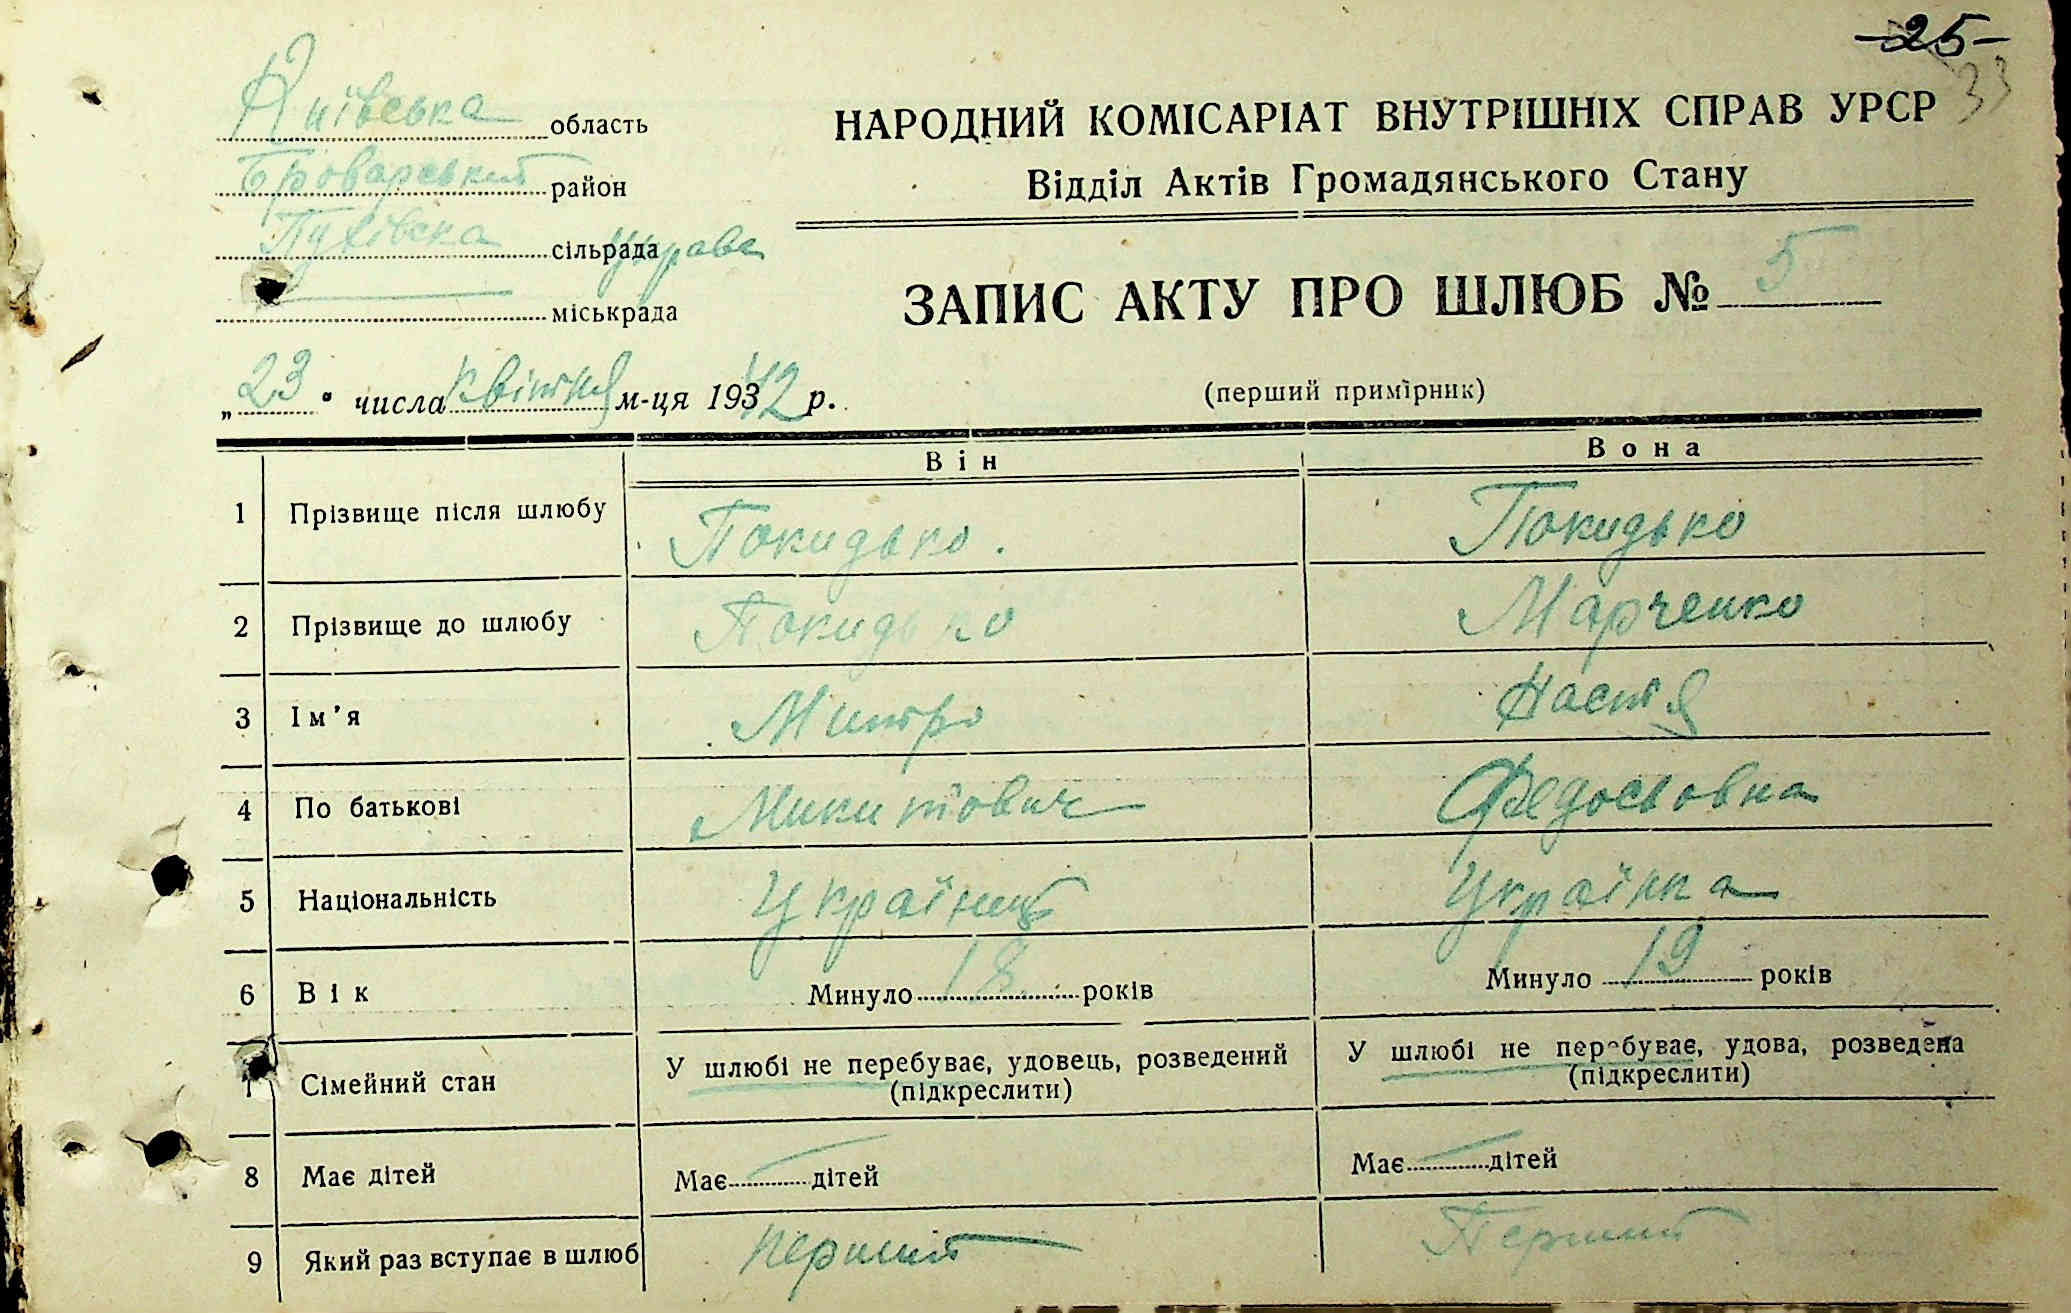 -25-
33
Київська область
Броварський район
Пухівска сільрада управа
міськрада
НАРОДНИЙ КОМІСАРІАТ ВНУТРІШНІХ СПРАВ УРСР
Відділ Актів Громадянського Стану
ЗАПИС АКТУ ПРО ШЛЮБ № 5
„23" числа квітня м-ця 19342 р.
(перший примірник)
Він Вона
1 Прізвище після шлюбу Покидько. Покидько
2 Прізвище до шлюбу Покидько Марченко
3 Ім'я Митро Настя
4 По батькові Микитович Федосьовна
5 Національність Українець Українка
6 Вік Минуло 18 років Минуло 19 років
7 Сімейний стан У шлюбі не перебуває, удовець, розведений (підкреслити) У шлюбі не перебуває, удова, розведена (підкреслити)
8 Має дітей Має — дітей Має — дітей
9 Який раз вступає в шлюб перший Перший